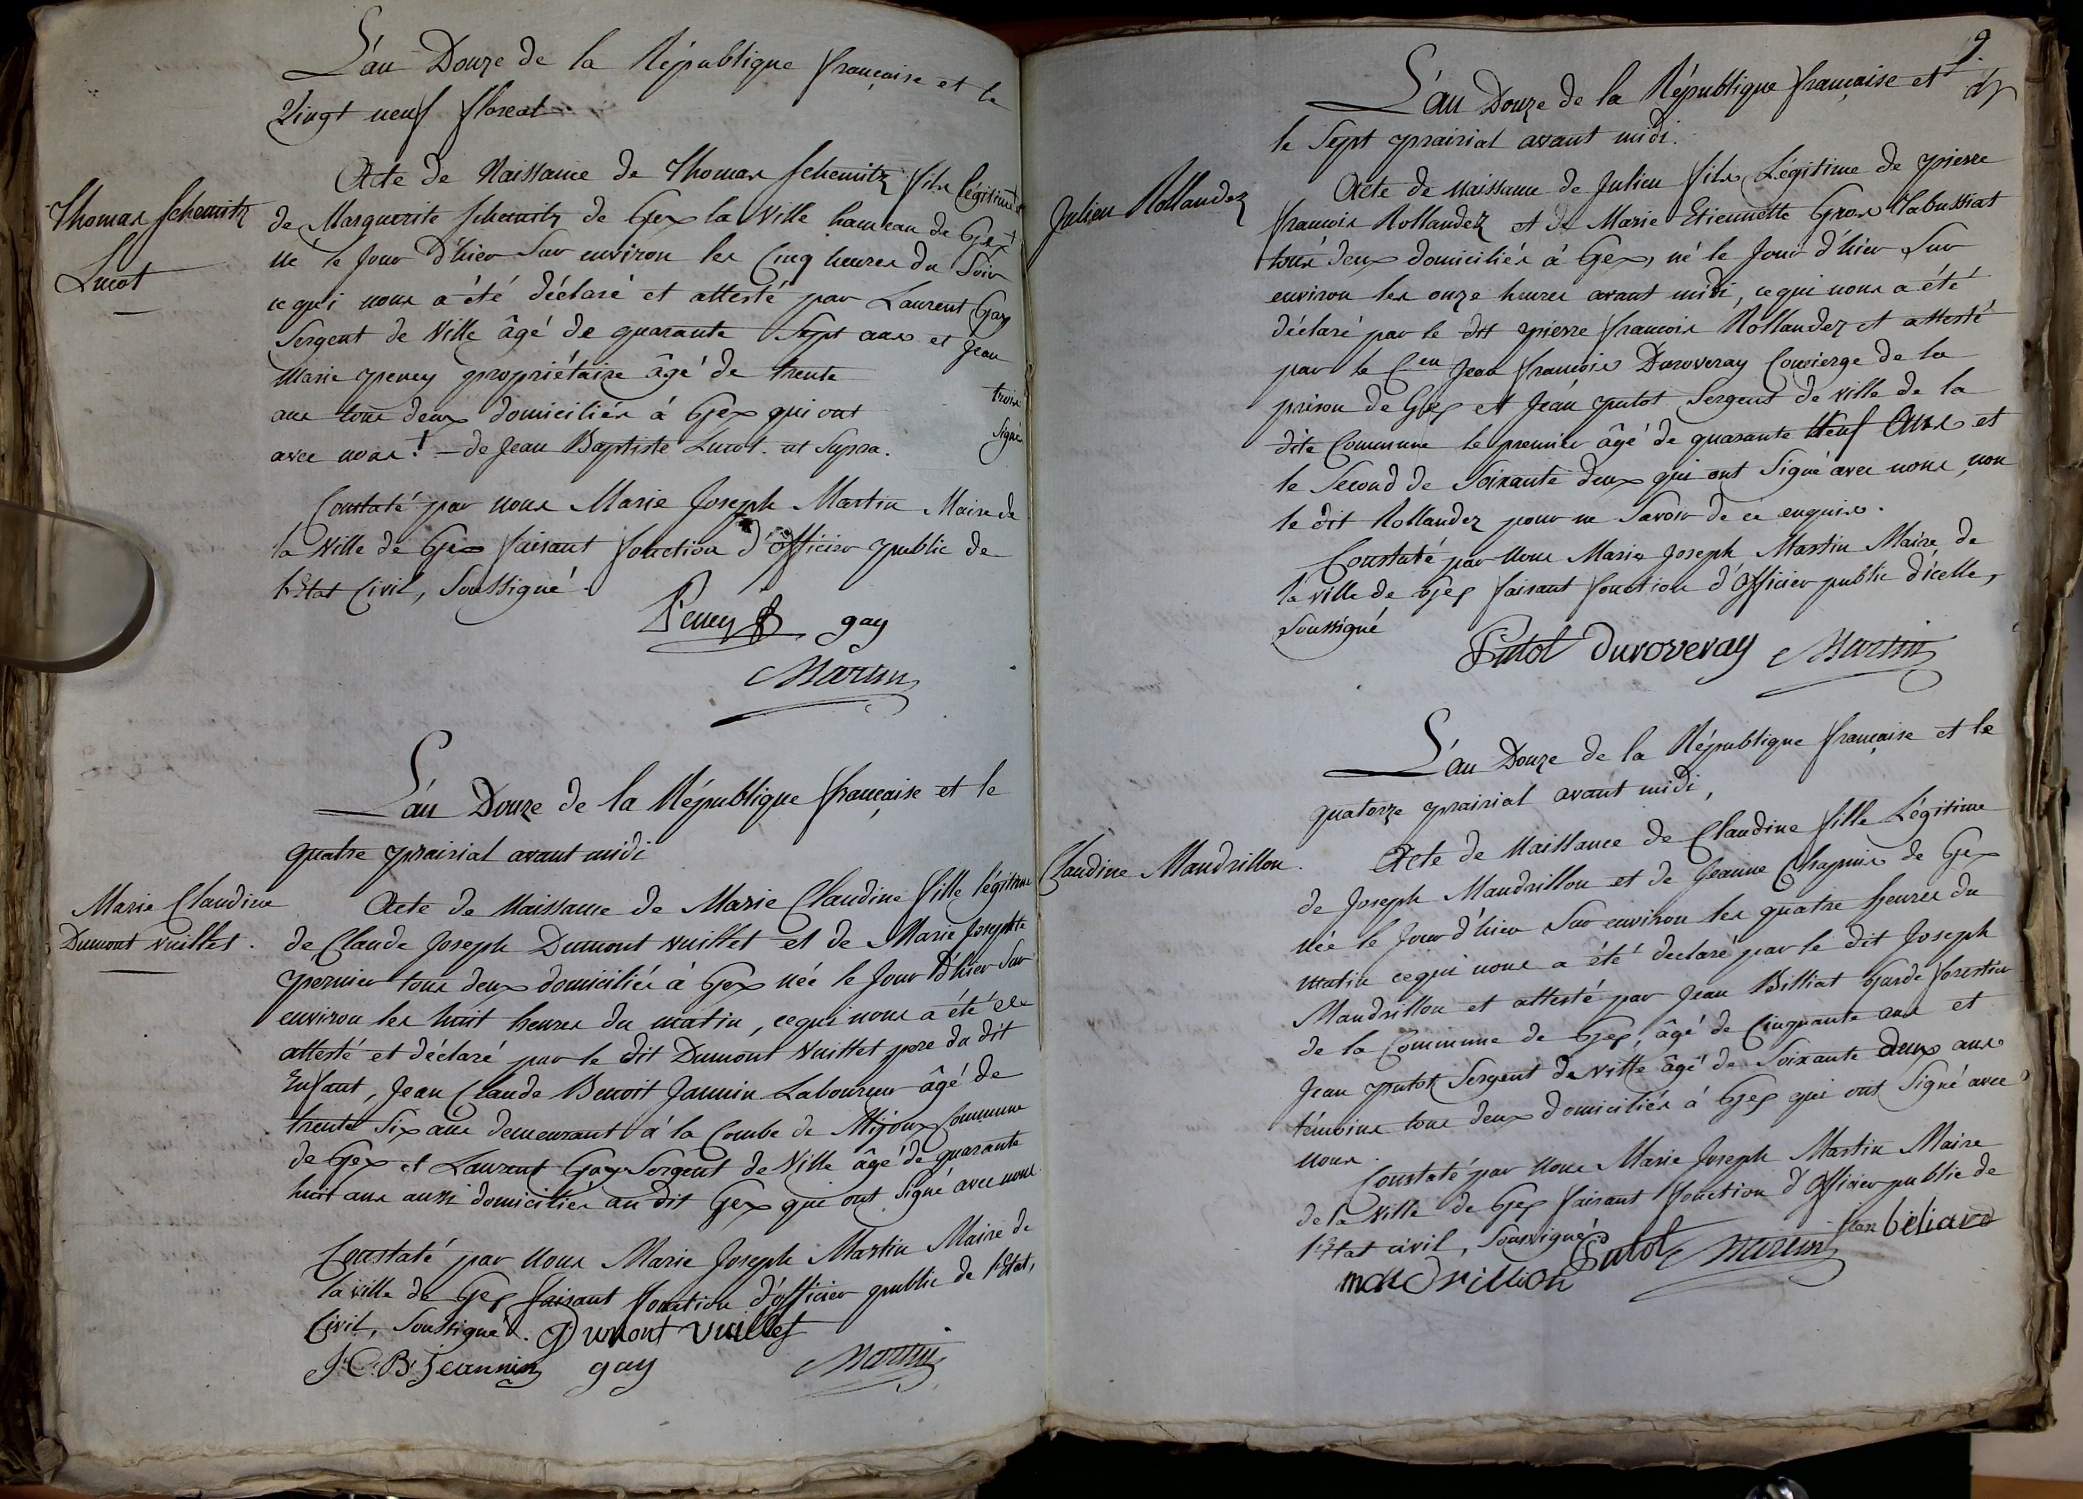 L'an Douze de la République française et le
Vingt neuf floreal
Thomas Schemitz
Lucot
Acte de Naissance de Thomas Schemitz fils légitime
de Marguerite Schemitz de Gex la Ville hameau de Gex +
né le Jour d'hier Sur environ les Cinq heures du Soir
ce qui nous a été déclaré et attesté par Laurent Gay
Sergent de Ville âgé de quarante Sept ans et Jean
Marie peney propriétaire âgé de trente trois
ans tous deux domiciliés à Gex qui ont Signé
avec nous. + – de Jean Baptiste Lucot. ut Supra.
Constaté par nous Marie Joseph Martin Maire de
la Ville de Gex faisant fonction d'officier public de
l'Etat Civil, Soussigné.
Peney gay
Martin
L'an Douze de la République française et le
quatre prairial avant midi
Marie Claudine
Dumont vuillet.
Acte de Naissance de Marie Claudine fille légitime
de Claude Joseph Dumont vuillet et de Marie Josephte
pernier tous deux domiciliés à Gex née le Jour d'hier Sur
environ les huit heures du matin, ce qui nous a été
attesté et déclaré par le dit Dumont Vuillet pere du dit
Enfant, Jean Claude Benoit Jannin Laboureur âgé de
trente Six ans demeurant à la Combe de Mijoux Commune
de Gex et Laurent Gay Sergent de Ville âgé de quarante
huit ans aussi domiciliés au dit Gex qui ont Signé avec nous.
Constaté par nous Marie Joseph Martin Maire de
la ville de Gex faisant fonction d'officier public de l'Etat,
Civil, Soussigné. Dumont vuillet
J. C. B. Jeannin gay Martin
9.
L'an Douze de la République française et
le Sept prairial avant midi.
Julien Rollandez
Acte de naissance de Julien fils Légitime de pierre
francois Rollandez et de Marie Etiennette Gros Clabussiat
tous deux domiciliés à Gex, né le Jour d'hier Sur
environ les onze heures avant midi, ce qui nous a été
déclaré par le dit pierre francois Rollandez et attesté
par le Cen Jean francois Duroveray Concierge de la
prison de Gex et Jean putot Sergent de ville de la
dite Commune le premier âgé de quarante Neuf Ans et
le Second de Soixante deux qui ont Signé avec nous non
le dit Rollandez pour ne Savoir de ce enquis.
Constaté par Nous Marie Joseph Martin Maire de
la ville de Gex faisant fonction d'Officier public d'icelle,
Soussigné
Putot Duroveray Martin
L'an Douze de la République française et le
quatorze prairial avant midi,
Claudine Mandrillon.
Acte de Naissance de Claudine fille Légitime
de Joseph Mandrillon et de Jeanne Chapuis de Gex
née le Jour d'hier Sur environ les quatre heures du
matin ce qui nous a été déclaré par le dit Joseph
Mandrillon et attesté par Jean Billiat Garde forestier
de la Commune de Gex, âgé de Cinquante ans et
Jean putot Sergent de ville âgé de Soixante deux ans
témoins tous deux domiciliés à Gex qui ont Signé avec
nous.
Constaté par Nous Marie Joseph Martin Maire
de la Ville de Gex faisant fonction d'Officier public de
l'Etat civil, Soussigné
Putot Martin Jean béliard
mandrillion